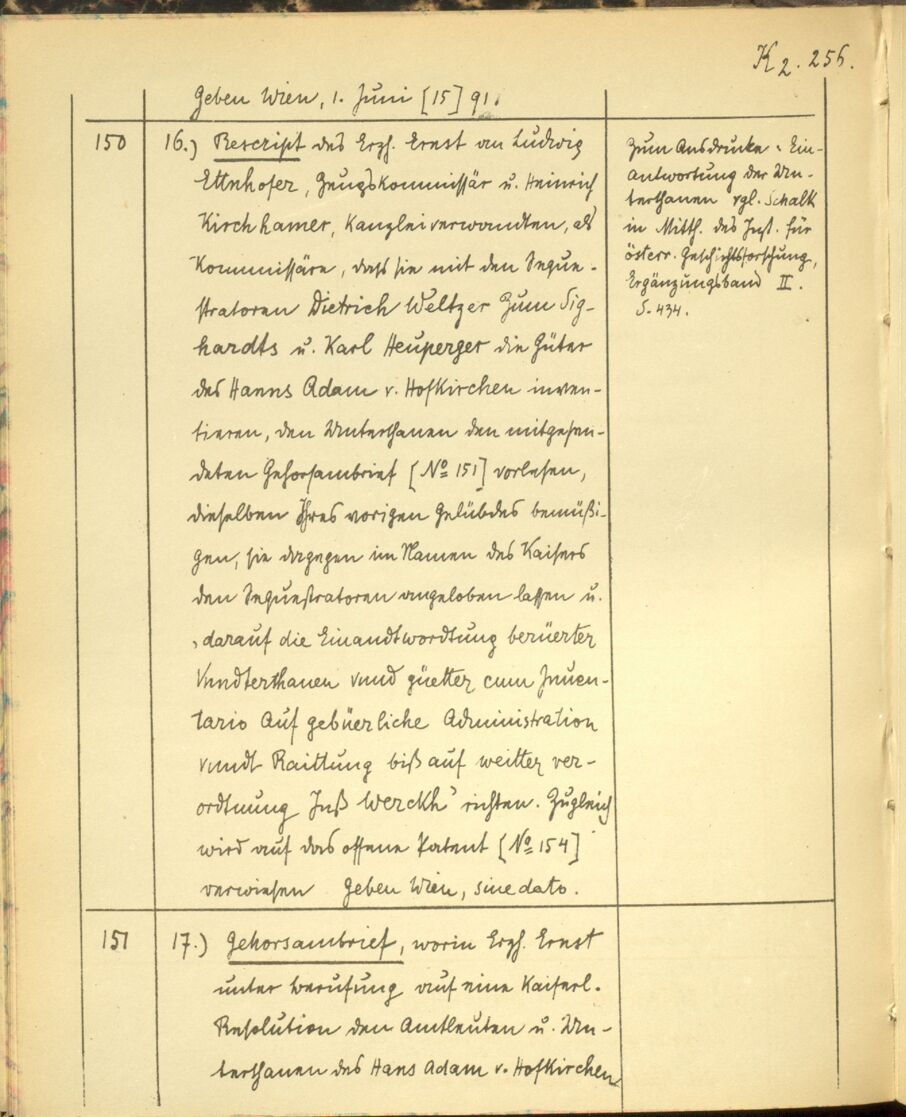 K2. 256.
Geben Wien, 1. Juni [15]91.
150
16.) Rescript des Erzh. Ernst an Ludwig
Ettnhofer, Zeugskommissär u. Heinrich
Kirchhamer, Kanzleiverwandten, als
Kommissäre, dass sie mit den Seque-
stratoren Dietrich Weltzer zum Sig-
hardts u. Karl Heuperger die Güter
des Hanns Adam v. Hofkirchen inven-
tieren, den Unterthanen den mitgesen-
deten Gehorsambrief [No 151] vorlesen,
dieselben Ihres vorigen Gelübdes bemüßi-
gen, sie dagegen im Namen des Kaisers
den Sequestratoren angeloben lassen u.
„darauf die Einandtwordtung berüerter
Vnndterthanen vnnd güetter cum Jnuen-
tario Auf gebüerliche Administration
vnndt Raittung biß auf weitter ver-
ordtnung Jnß Werckh“ richten. Zugleich
wird auf das offene Patent [No 154]
verwiesen Geben Wien, sine dato.
Zum Ausdrucke „Ein-
antwortung der Un-
terthanen vgl. Schalk
in Mitth. des Inst. für
österr. Geschichtsforschung,
Ergänzungsband II.
S. 434.
151
17.) Gehorsambrief, worin Erzh. Ernst
unter Berufung auf eine Kaiserl.
Resolution den Amtleuten u. Un-
terthanen des Hans Adam v. Hofkirchen